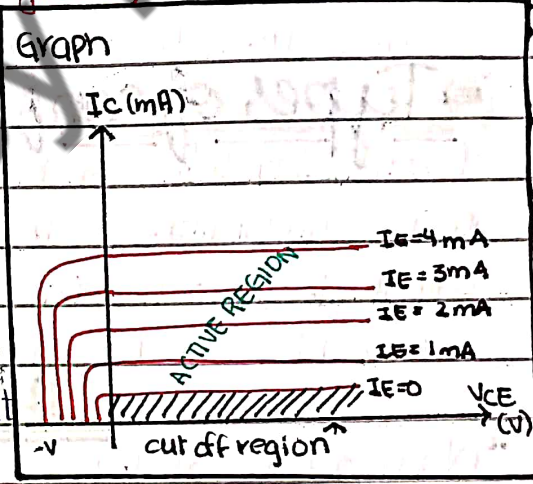 Graph
Ic (mA)
IE=4mA
IE = 3mA
IE = 2mA
IE = 1mA
IE=0
ACTIVE REGION
VCE
(V)
-V
cut off region